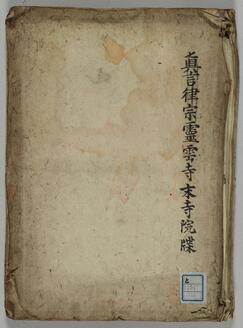 眞言律宗靈雲寺末寺院牒